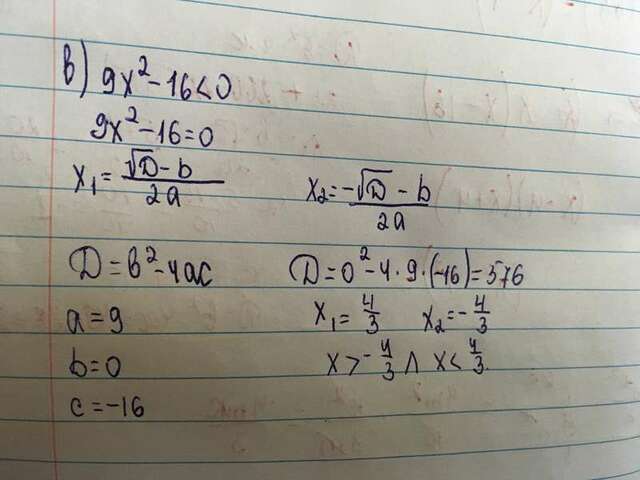 в) 9x² - 16 < 0
9x² - 16 = 0
x₁ = (√D - b)/2a    x₂ = (-√D - b)/2a
D = b² - 4ac    D = 0² - 4 · 9 · (-16) = 576
a = 9    x₁ = 4/3    x₂ = -4/3
b = 0    x > -4/3 ∧ x < 4/3.
c = -16